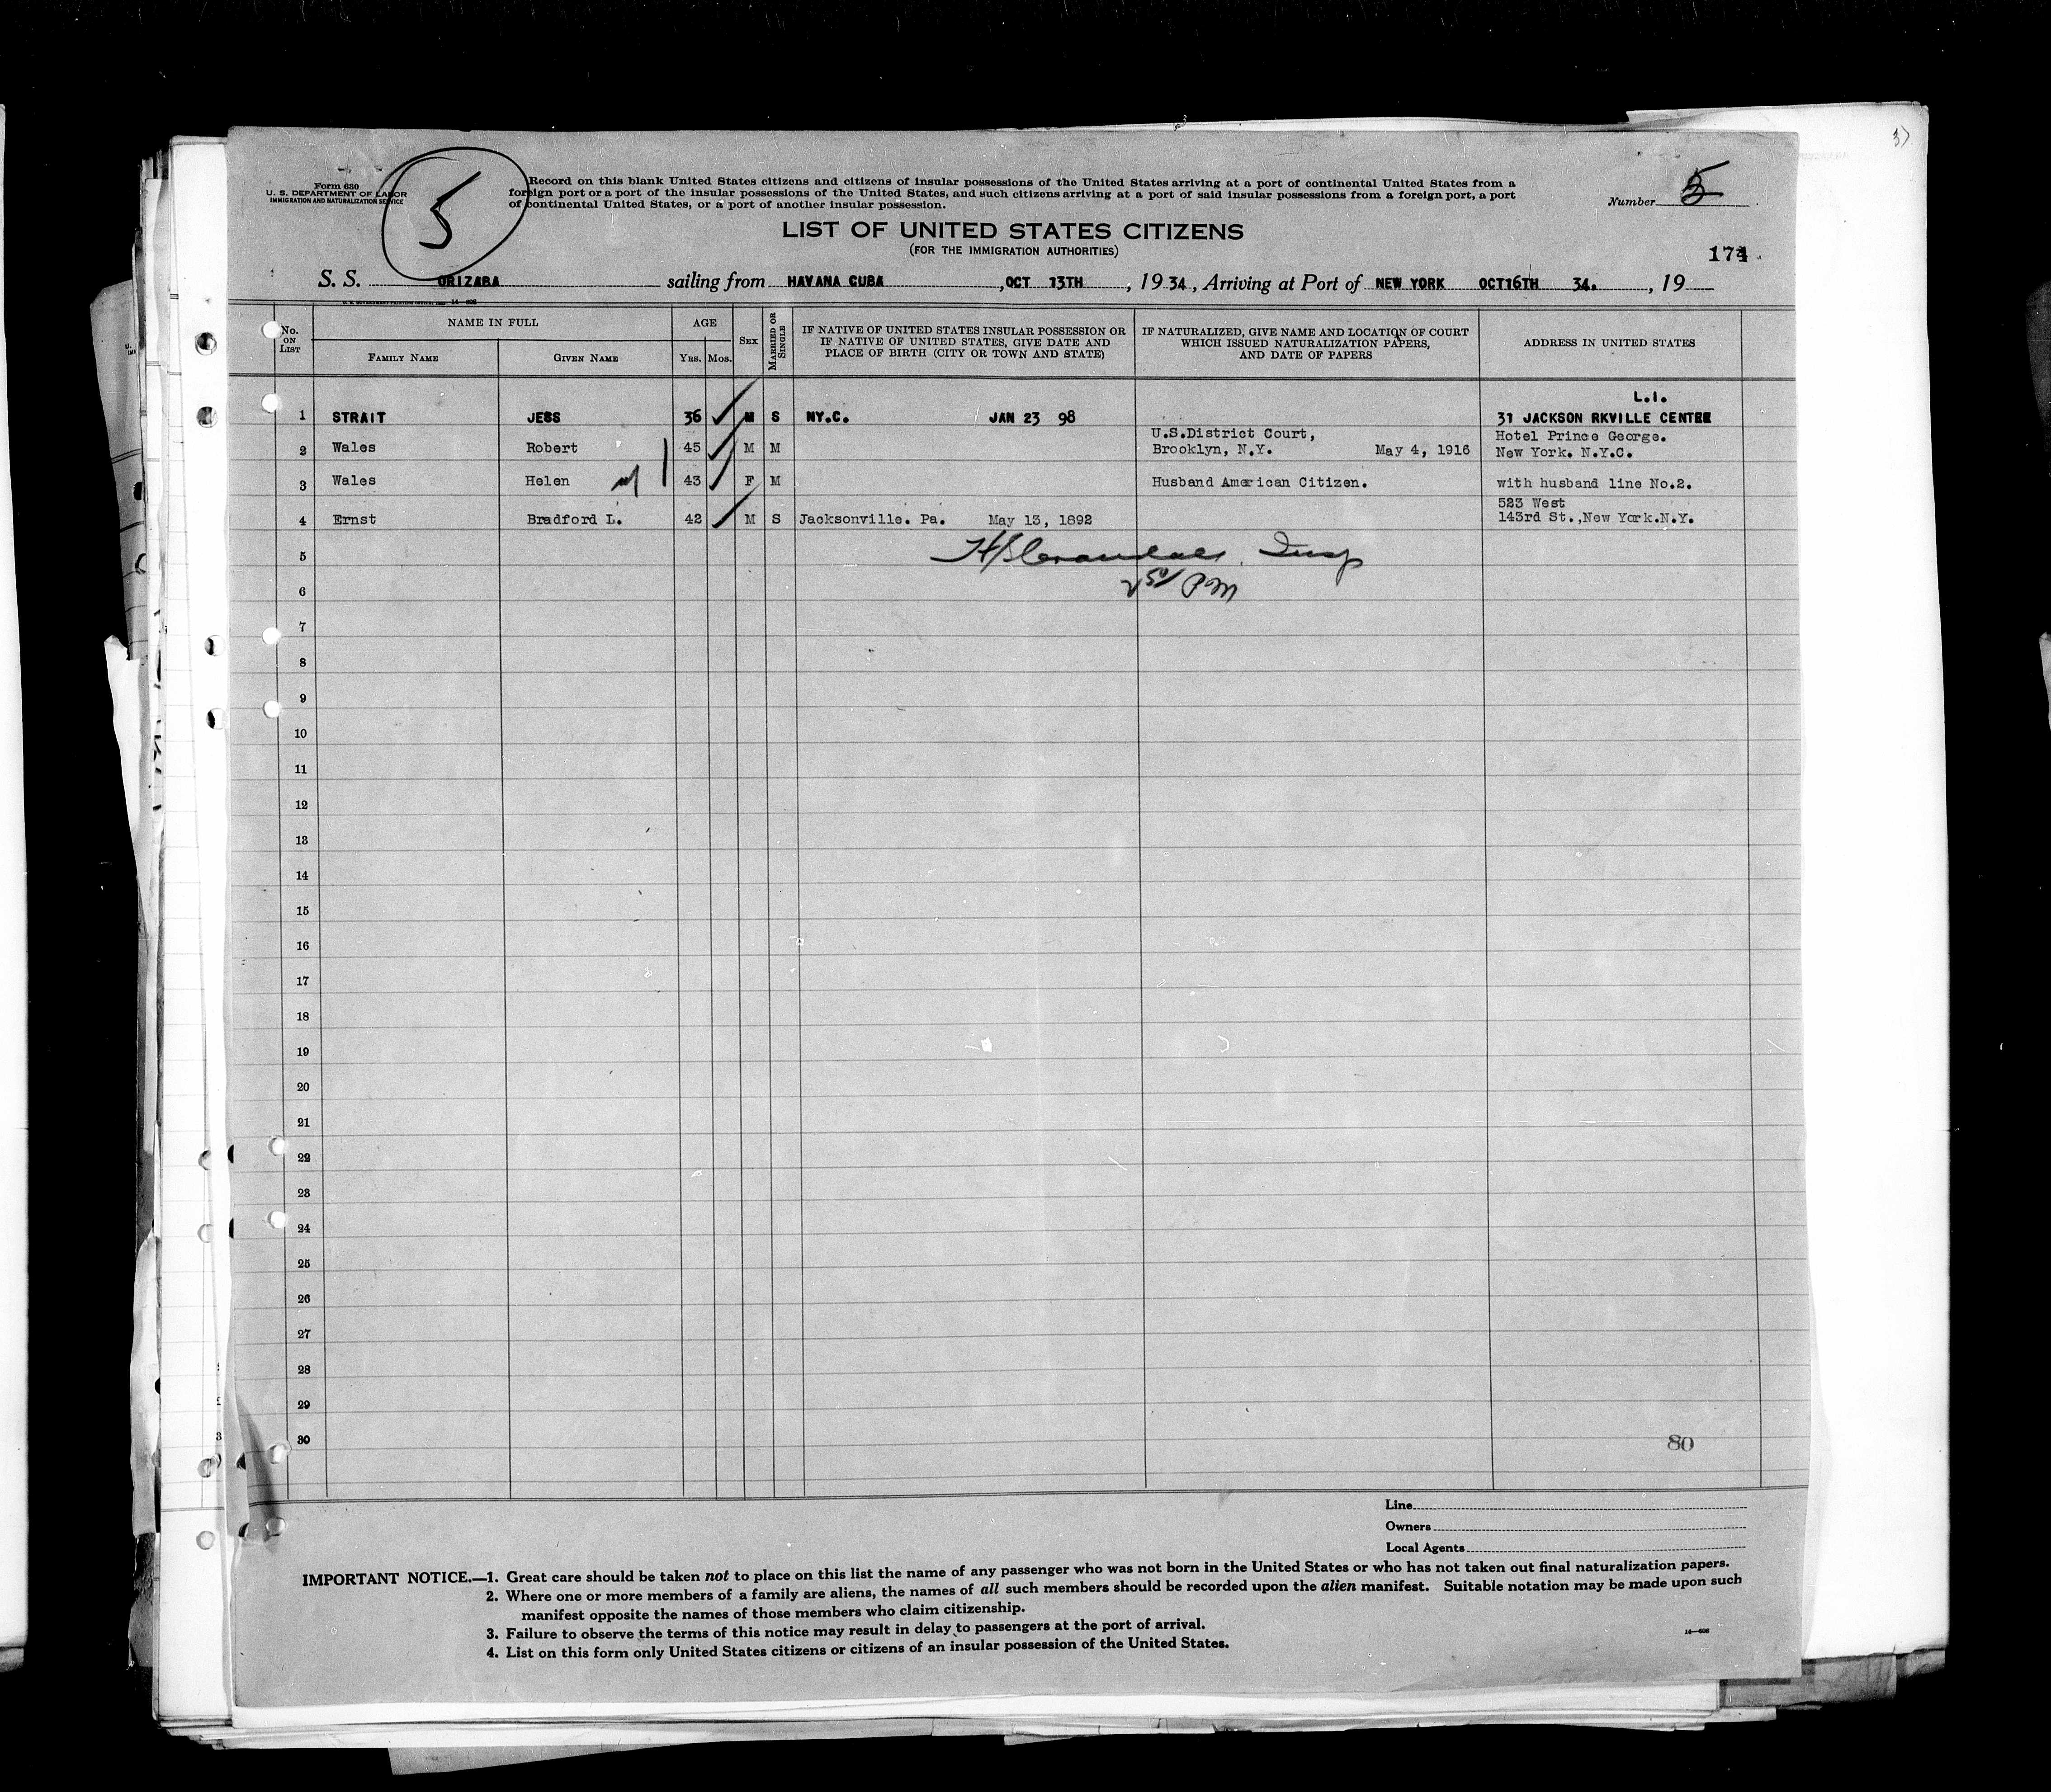 Form 630
U. S. DEPARTMENT OF LABOR
IMMIGRATION AND NATURALIZATION SERVICE
5
Record on this blank United States citizens and citizens of insular possessions of the United States arriving at a port of continental United States from a
foreign port or a port of the insular possessions of the United States, and such citizens arriving at a port of said insular possessions from a foreign port, a port
of continental United States, or a port of another insular possession.
Number 5
LIST OF UNITED STATES CITIZENS
(FOR THE IMMIGRATION AUTHORITIES)
174
S. S. ORIZABA sailing from HAVANA CUBA , OCT 13TH , 1934, Arriving at Port of NEW YORK OCT16TH 34. , 19
No. ON LIST
NAME IN FULL
FAMILY NAME
GIVEN NAME
AGE
YRS. MOS.
SEX
MARRIED OR SINGLE
IF NATIVE OF UNITED STATES INSULAR POSSESSION OR
IF NATIVE OF UNITED STATES, GIVE DATE AND
PLACE OF BIRTH (CITY OR TOWN AND STATE)
IF NATURALIZED, GIVE NAME AND LOCATION OF COURT
WHICH ISSUED NATURALIZATION PAPERS,
AND DATE OF PAPERS
ADDRESS IN UNITED STATES
L.I.
1 STRAIT JESS 36 M S NY.C. JAN 23 98 31 JACKSON RKVILLE CENTRE
U.S.District Court, Hotel Prince George.
2 Wales Robert 45 M M Brooklyn, N.Y. May 4, 1916 New York. N.Y.C.
3 Wales Helen 43 F M Husband American Citizen. with husband line No.2.
523 West
4 Ernst Bradford L. 42 M S Jacksonville. Pa. May 13, 1892 143rd St.,New York.N.Y.
5
6
7
8
9
10
11
12
13
14
15
16
17
18
19
20
21
22
23
24
25
26
27
28
29
30
80
Line
Owners
Local Agents
IMPORTANT NOTICE.—1. Great care should be taken not to place on this list the name of any passenger who was not born in the United States or who has not taken out final naturalization papers.
2. Where one or more members of a family are aliens, the names of all such members should be recorded upon the alien manifest. Suitable notation may be made upon such
manifest opposite the names of those members who claim citizenship.
3. Failure to observe the terms of this notice may result in delay to passengers at the port of arrival.
4. List on this form only United States citizens or citizens of an insular possession of the United States.
14—606